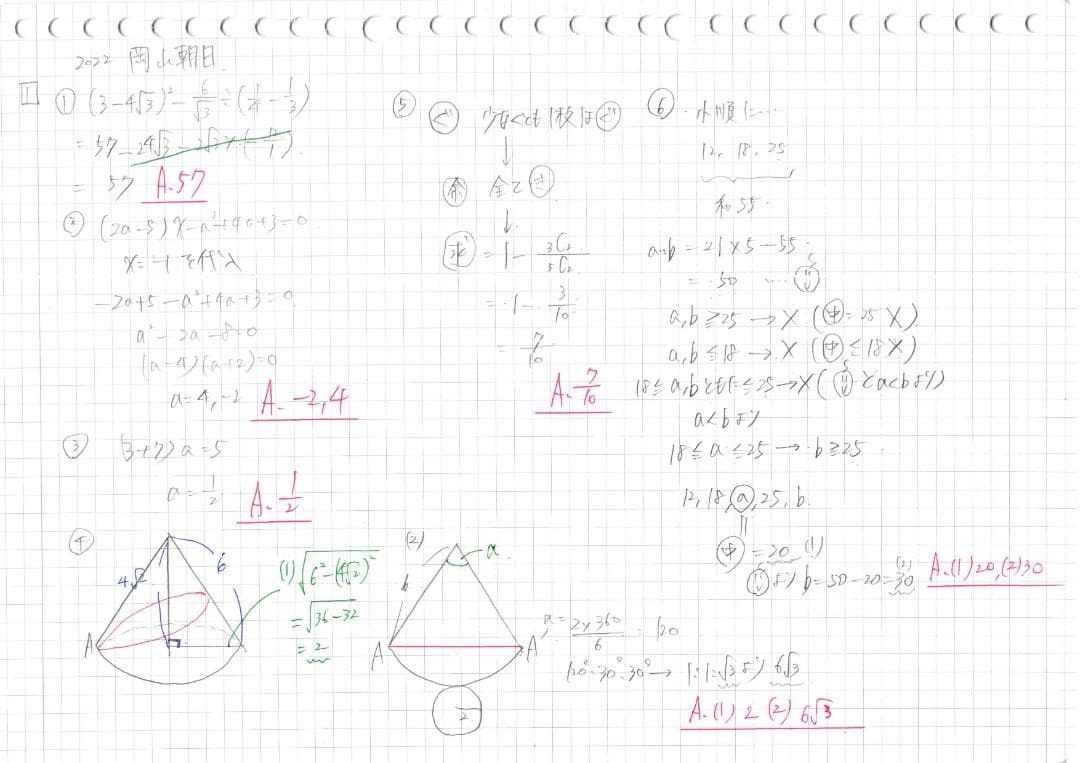 2022 岡山朝日
1
① (3-4√3)² - 6/√3 ÷ (1/4 - 1/3)
= 57 - 24√3 - 2√3 × (-12/1)
= 57 A. 57
② (2a-5)x-a²+4a+3=0
x=-1を代入
-2a+5-a²+4a+3=0
a²-2a-8=0
(a-4)(a+2)=0
a=4,-2 A. -2,4
③ (3+7)a=5
a=1/2 A. 1/2
④
4√2
6
A
(1) √(6²-(4√2)²)
=√(36-32)
=2
(2)
a
6
A A'
2
a=2×360/6=120
120°・30°・30°→1:1:√3より 6√3
A. (1) 2 (2) 6√3
⑤ ぐ 少なくとも1枚はぐ
↓
余 全てき
↓
求 = 1 - ₃C₂/₅C₂
= 1 - 3/10
= 7/10
A. 7/10
⑥ ・小順に…
12, 18, 25
和55
a+b=21×5-55
=50 …
a,b≧25→× (中=25×)
a,b≦18→× (中≦18×)
18≦a,bともに≦25→× (とa<bより)
a<bより
18≦a≦25→b≧25
12, 18, a, 25, b
中=20 (1)
より b=50-20=30 (2)
A. (1) 20, (2) 30